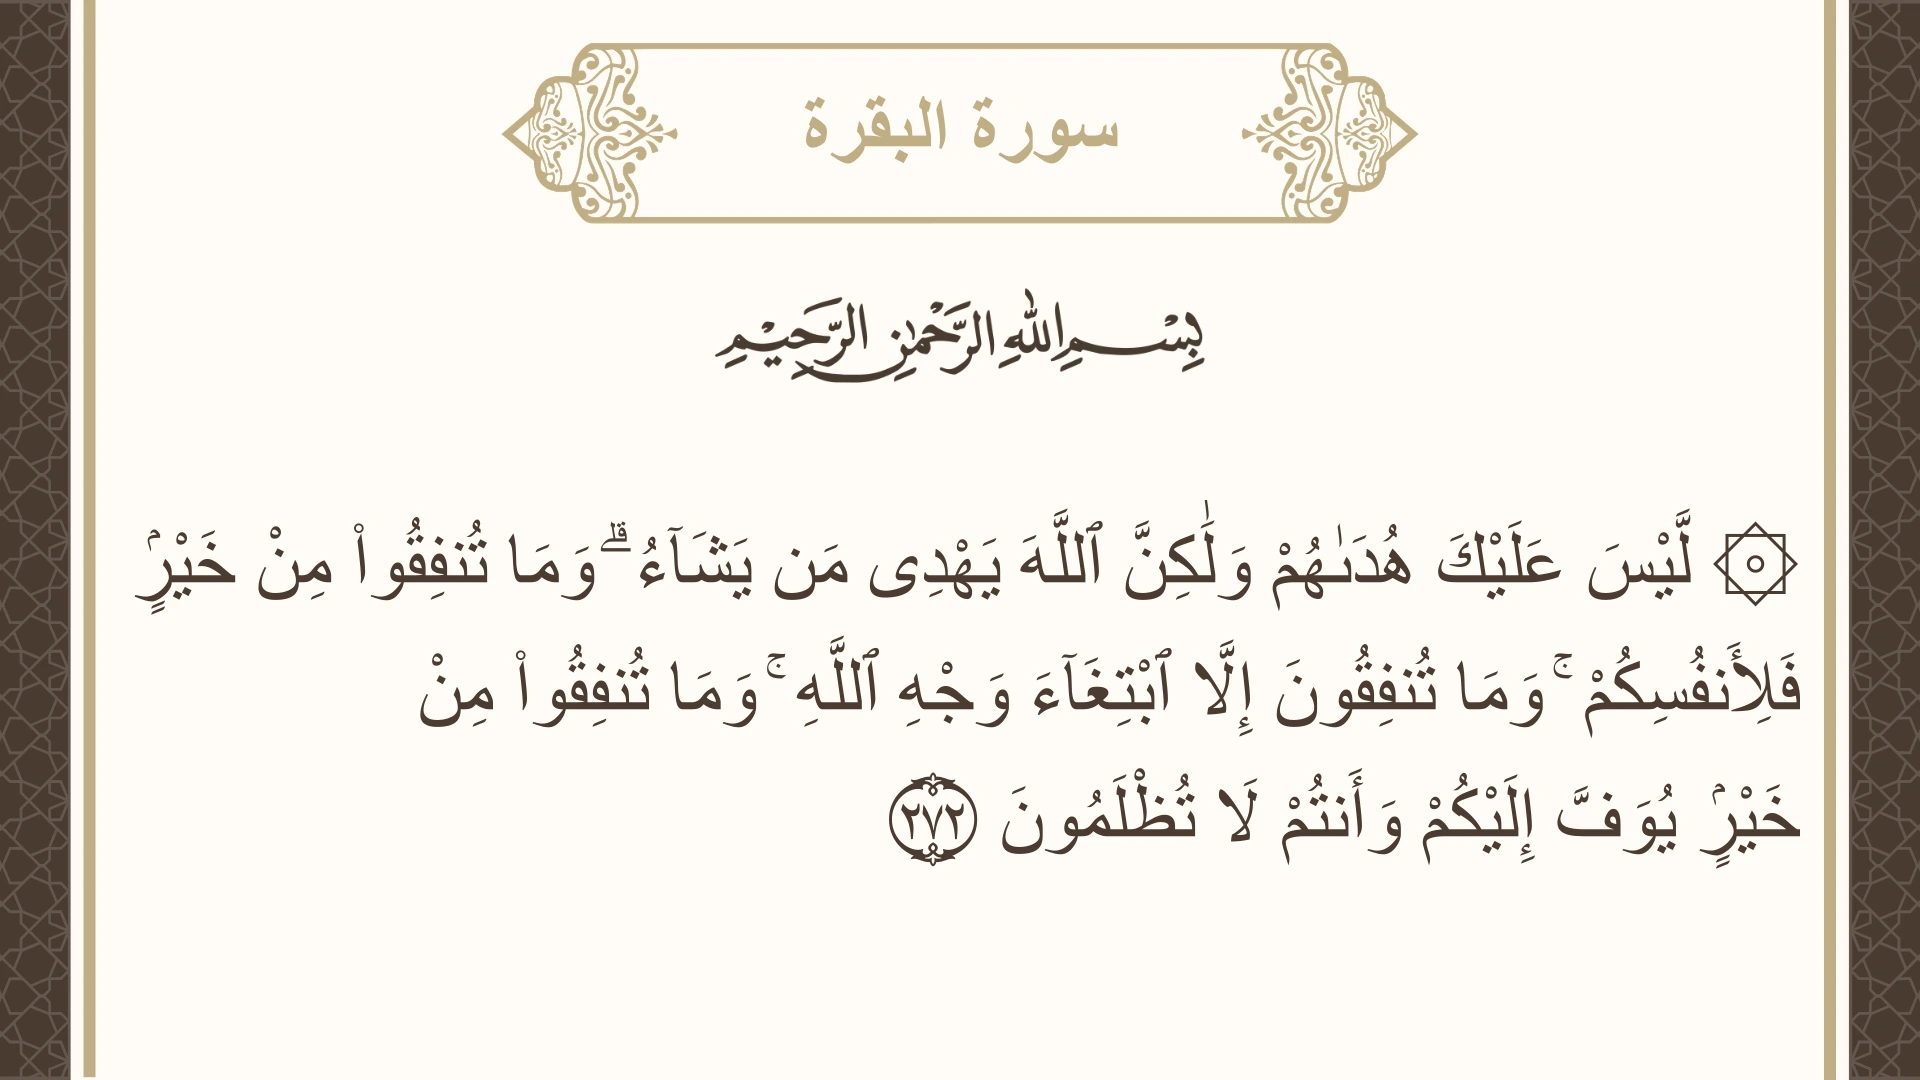 سورة البقرة
بِسْمِ اللهِ الرَّحْمٰنِ الرَّحِيْمِ
۞ لَّيْسَ عَلَيْكَ هُدَىٰهُمْ وَلَٰكِنَّ ٱللَّهَ يَهْدِى مَن يَشَآءُ ۗ وَمَا تُنفِقُوا۟ مِنْ خَيْرٍۢ
فَلِأَنفُسِكُمْ ۚ وَمَا تُنفِقُونَ إِلَّا ٱبْتِغَآءَ وَجْهِ ٱللَّهِ ۚ وَمَا تُنفِقُوا۟ مِنْ
خَيْرٍۢ يُوَفَّ إِلَيْكُمْ وَأَنتُمْ لَا تُظْلَمُونَ ٢٧٢